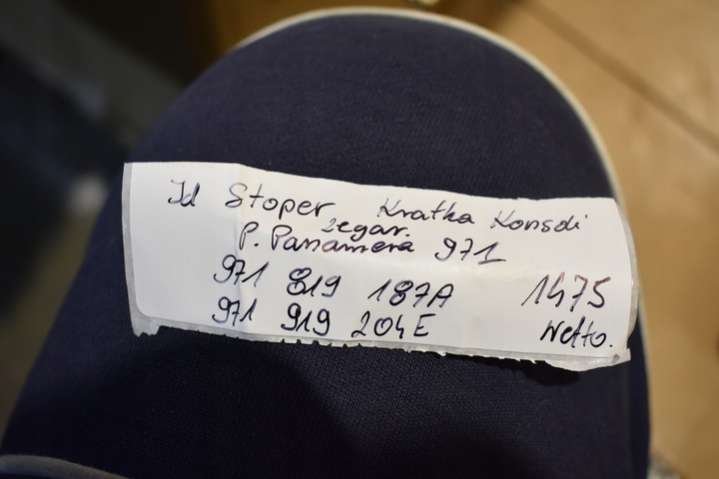 Id Stoper Kratka Konsoli
zegar.
P. Panamera 971
971 819 187A 1475
971 919 204E Netto.